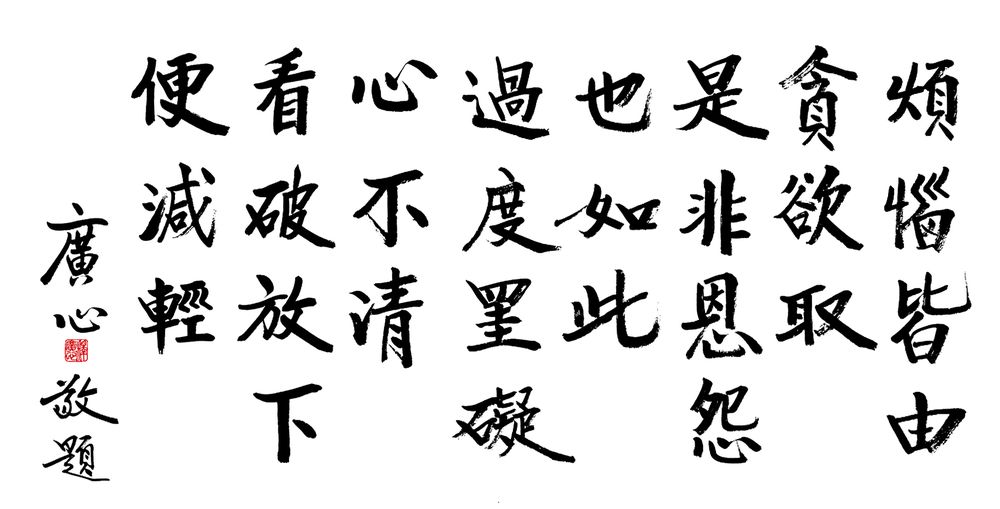 煩惱皆由
貪欲取
是非恩怨
也如此
過度罣礙
心不清
看破放下
便減輕
廣心敬題